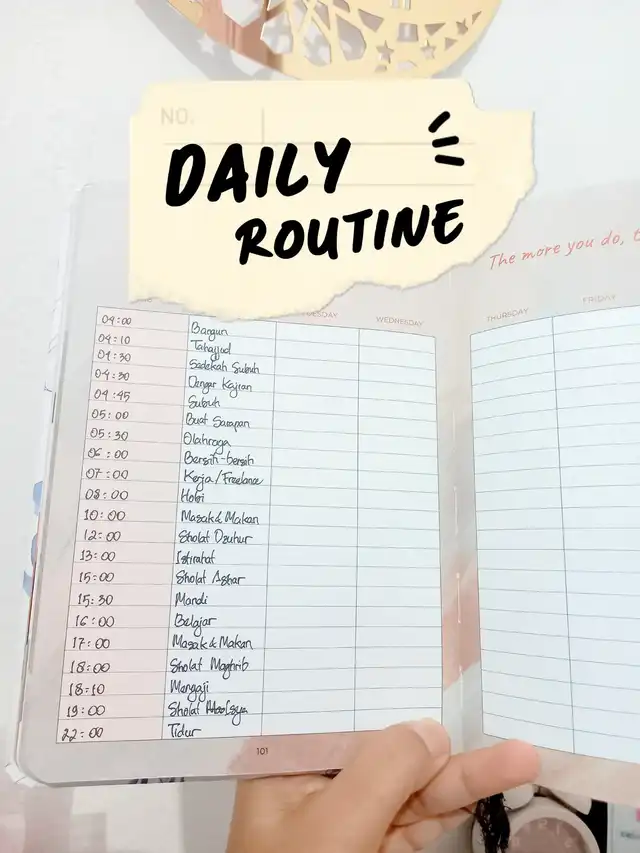 NO.
DAILY
ROUTINE
The more you do, t
TUESDAY WEDNESDAY THURSDAY FRIDAY
04:00 Bangun
04:10 Tahajjud
04:30 Sedekah Subuh
04:30 Dengar Kajian
04:45 Subuh
05:00 Buat Sarapan
05:30 Olahraga
06:00 Bersih-bersih
07:00 Kerja/Freelance
08:00 Hobi
10:00 Masak & Makan
12:00 Sholat Dzuhur
13:00 Istirahat
15:00 Sholat Ashar
15:30 Mandi
16:00 Belajar
17:00 Masak & Makan
18:00 Sholat Maghrib
18:10 Mengaji
19:00 Sholat Isya
22:00 Tidur
101